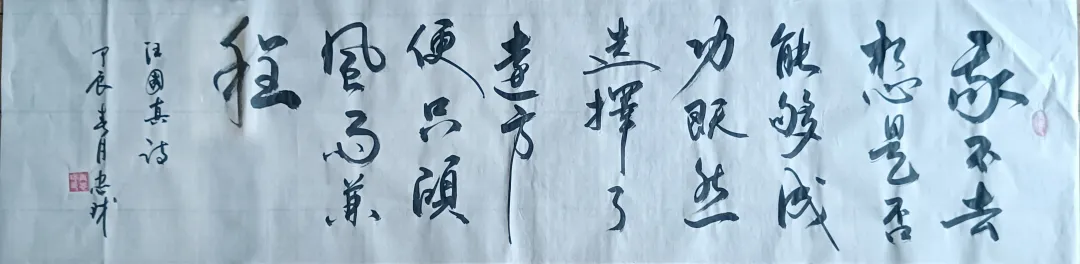 我不去
想是否
能够成
功既然
选择了
远方
便只顾
风雨兼
程
汪国真诗
甲辰春月忠球